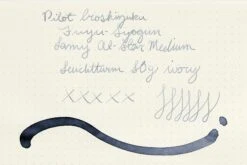 Pilot Iroshizuku
Fuyu-Syogun
Lamy Al-Star Medium
Leuchtturm 80g ivory
x x x x x